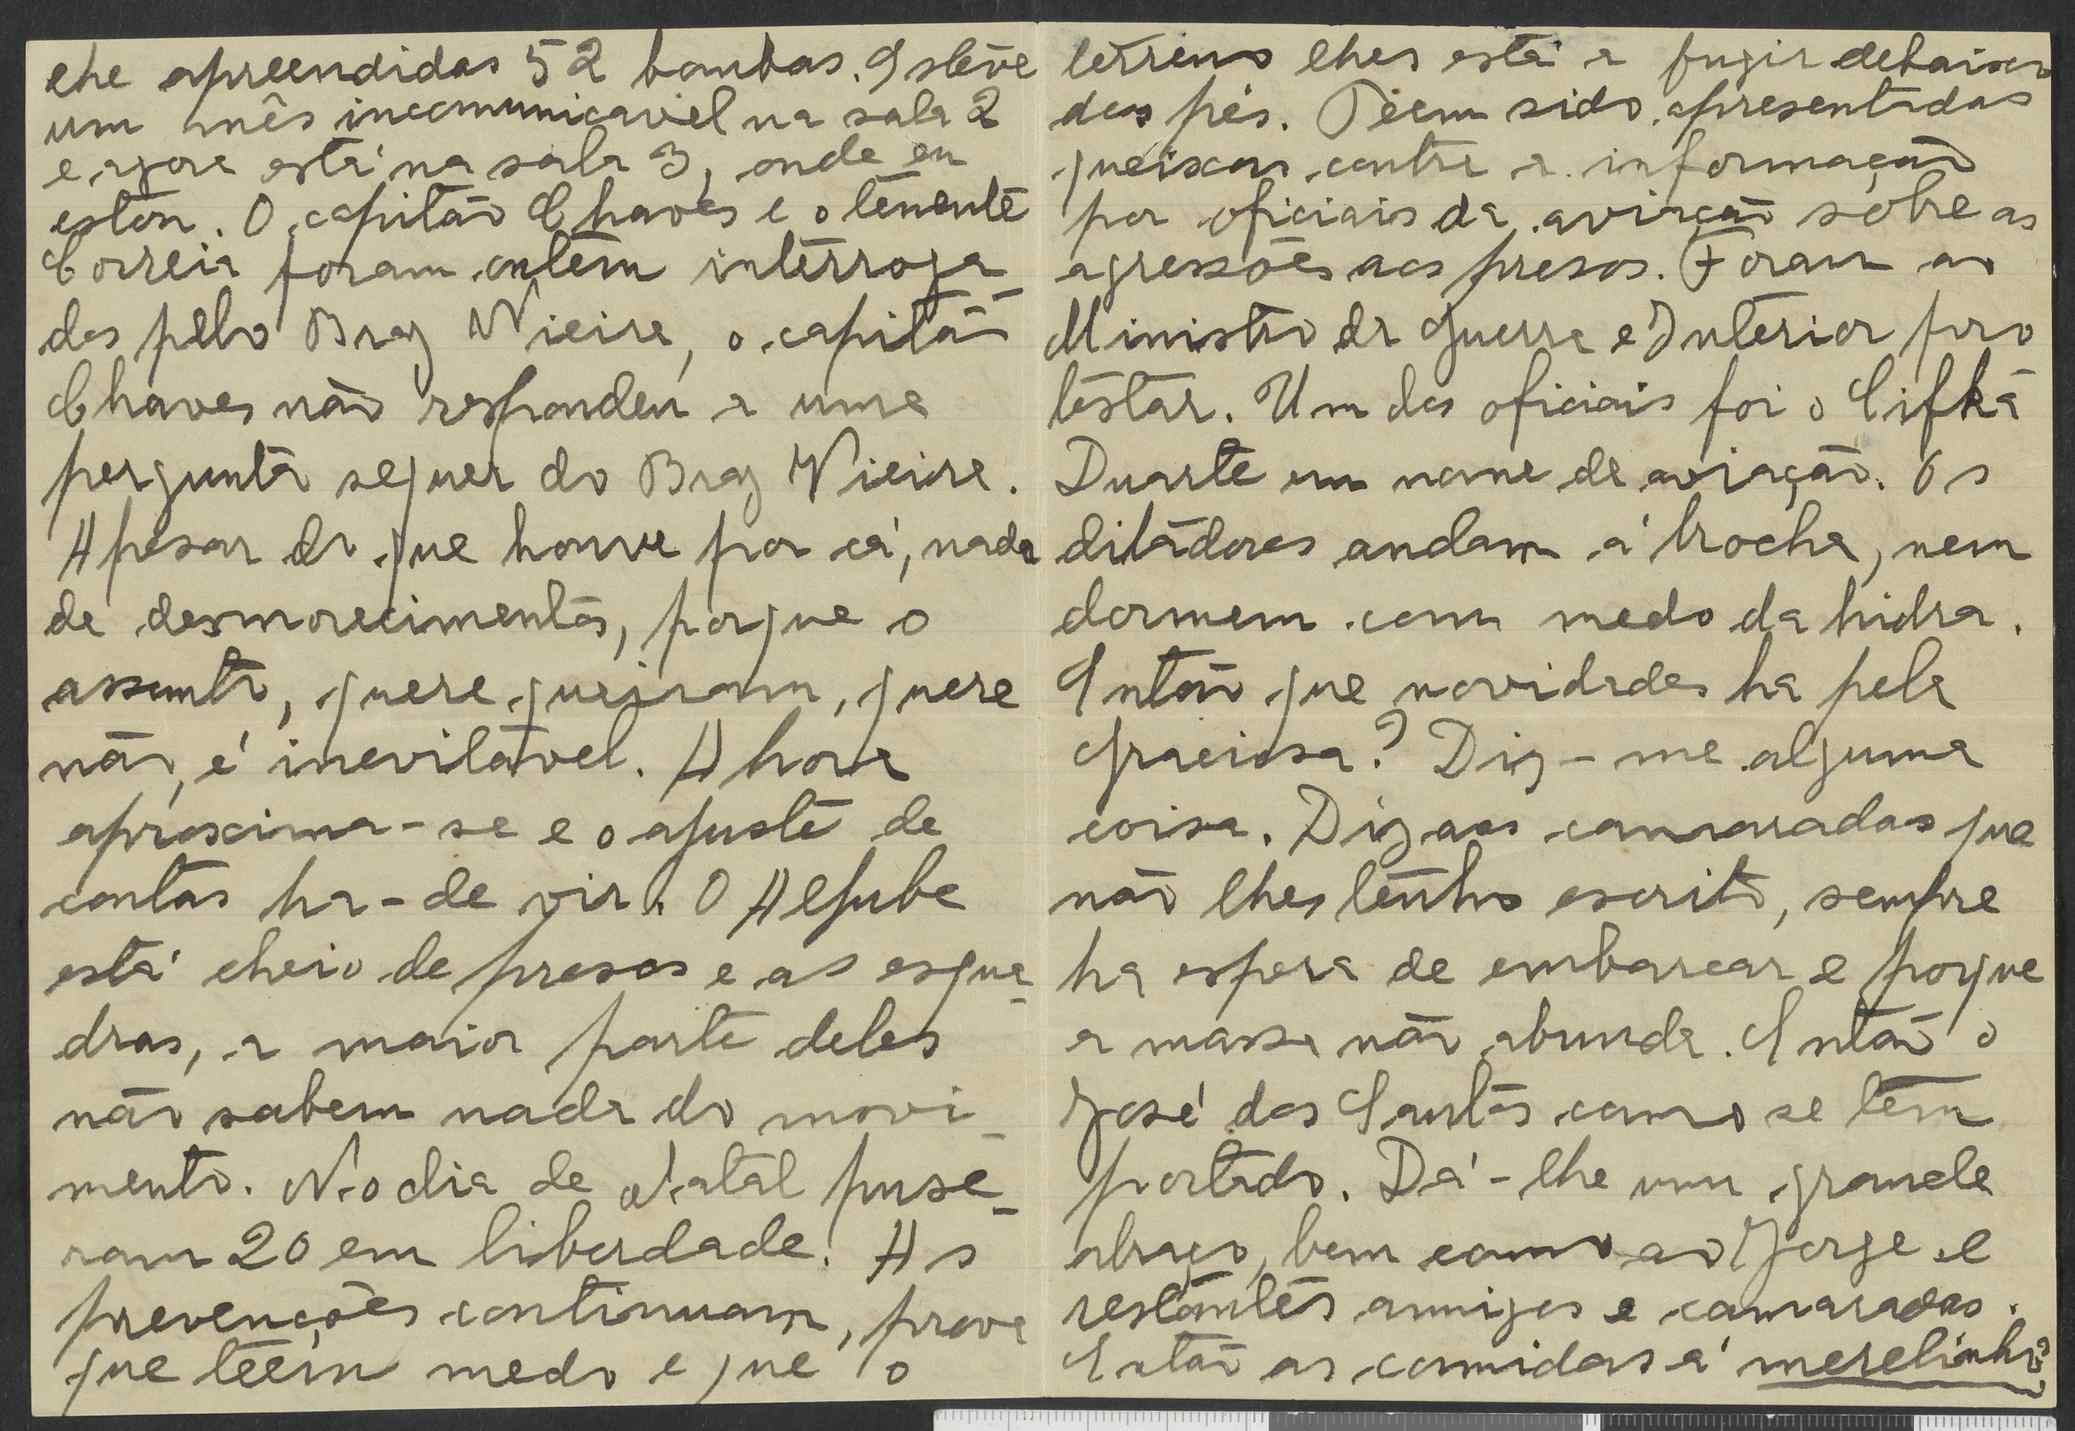 lhe apreendidas 52 bombas. Esteve
um mês incomunicavel na sala 2
e agora está na sala 3, onde eu
estou. O capitão Chaves e o tenente
Correia foram ontem interroga-
dos pelo Braz Vieira, o capitão
Chaves não respondeu a uma
pergunta sequer do Braz Vieira.
Apesar do que houve por cá, nada
de desmorecimentos, porque o
assunto, quere queiram, quere
não, é inevitável. A hora
aproxima-se e o ajuste de
contas ha-de vir. O Aljube
está cheio de presos e as esqua-
dras, a maior parte deles
não sabem nada do movi-
mento. No dia de Natal puse-
ram 20 em liberdade. As
prevenções continuam, prova
que têem medo e que o
terreno lhes está a fugir debaixo
dos pés. Têem sido apresentadas
queixas contra a informação
por oficiais da aviação sobre as
agressões aos presos. Foram ao
Ministro da Guerra e Interior pro
testar. Um dos oficiais foi o Cifka
Duarte em nome da aviação. Os
ditadores andam á brocha, nem
dormem com medo da hidra.
Então que novidades ha pela
Graciosa? Diz-me alguma
coisa. Diz aos camaradas que
não lhes tenho escrito, sempre
ha espera de embarcar e porque
a massa não abunda. Então o
José dos Santos como se tem
portado. Dá-lhe um grande
abraço, bem como ao Jorge e
restantes amigos e camaradas.
Então as comidas á merelinho?